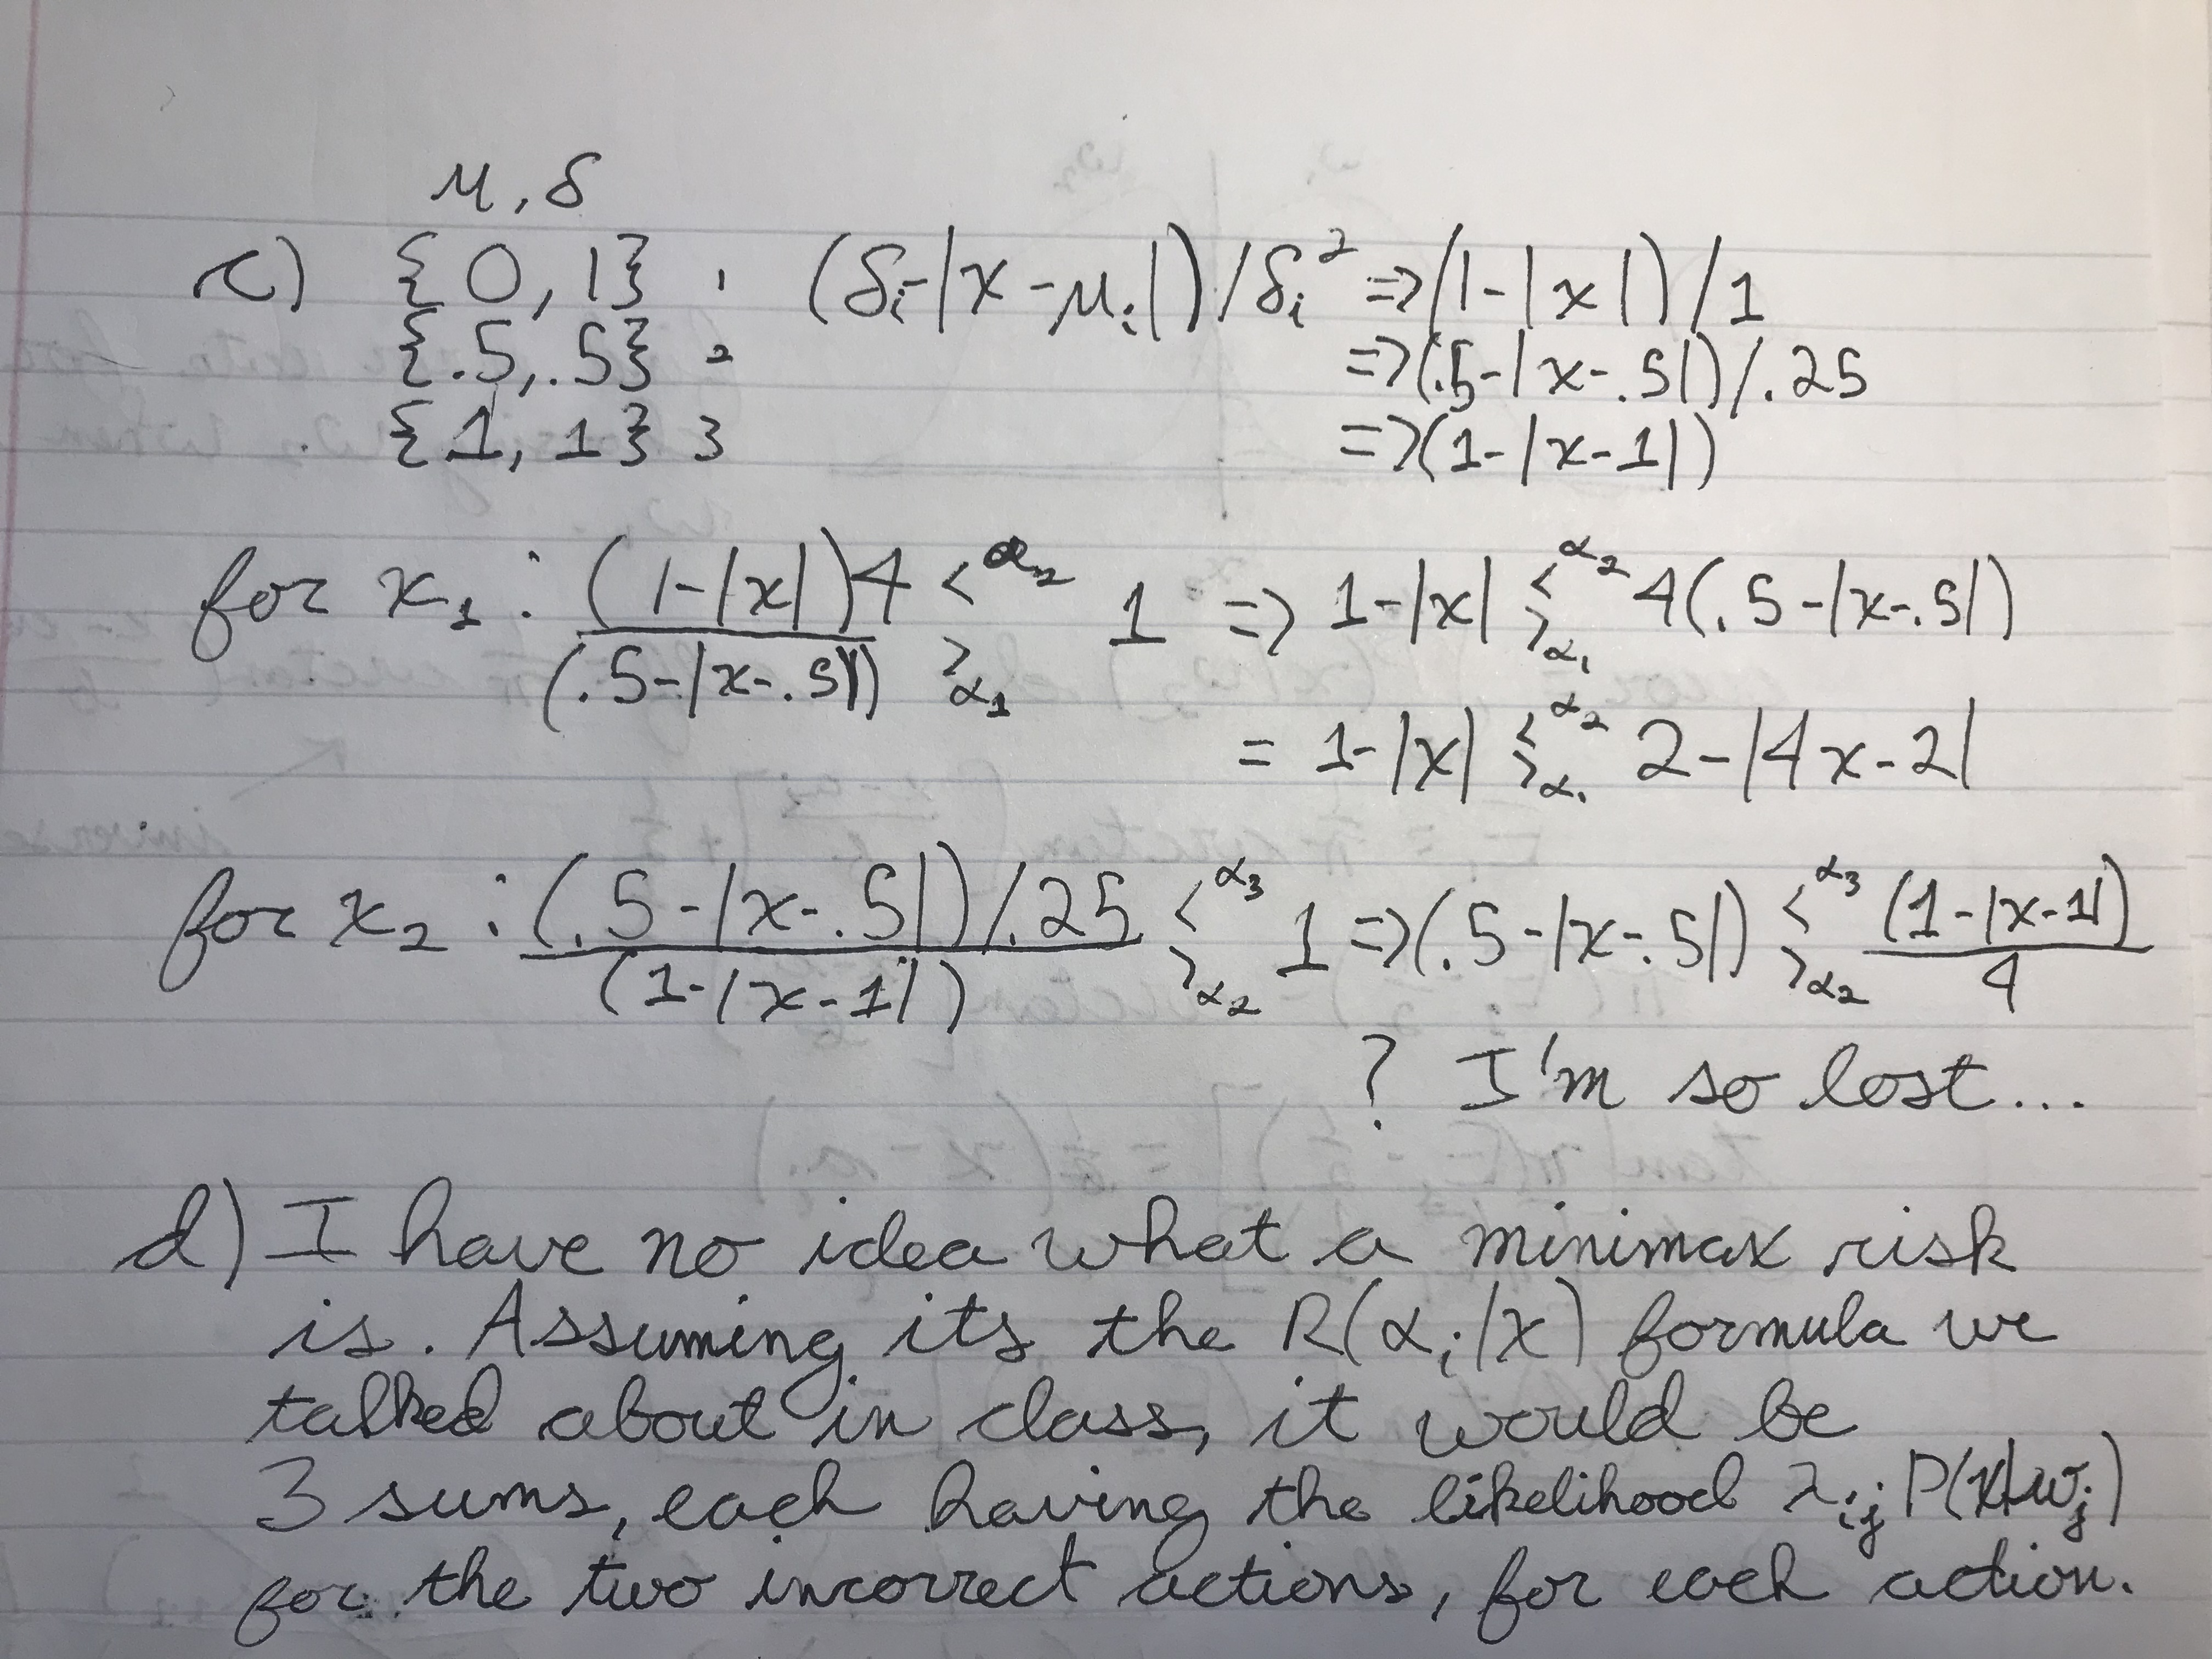 μ, δ
c) {0, 1} 1 (δi-|x-μi|)/δi² =>(1-|x|)/1
{.5,.5} 2 =>(.5-|x-.5|)/.25
{1, 1} 3 =>(1-|x-1|)
for x1: (1-|x|)4 / (.5-|x-.5|) <α2 >α1 1 => 1-|x| <α2 >α1 4(.5-|x-.5|)
= 1-|x| <α2 >α1 2-|4x-2|
for x2: (.5-|x-.5|)/.25 / (1-|x-1|) <α3 >α2 1 =>(.5-|x-.5|) <α3 >α2 (1-|x-1|) / 4
? I'm so lost...
d) I have no idea what a minimax risk
is. Assuming its the R(αi|x) formula we
talked about in class, it would be
3 sums, each having the likelihood λij P(x|ωj)
for the two incorrect actions, for each action.